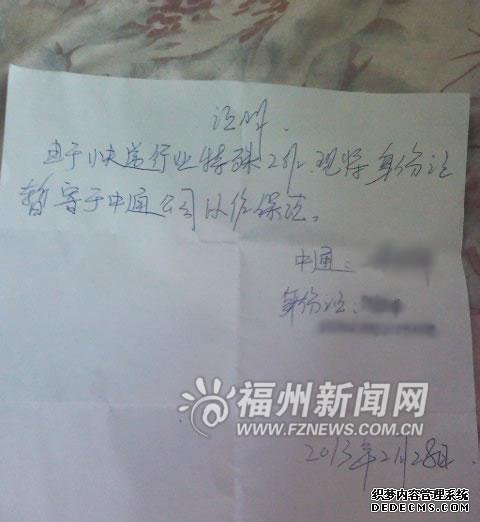 证明.
由于快递行业特殊工作,现将身份证
暂寄于中通公司以作保证。
中通:
身份证:
福州新闻网
WWW.FZNEWS.COM.CN
2013年2月28日.
织梦内容管理系统
DEDECMS.COM